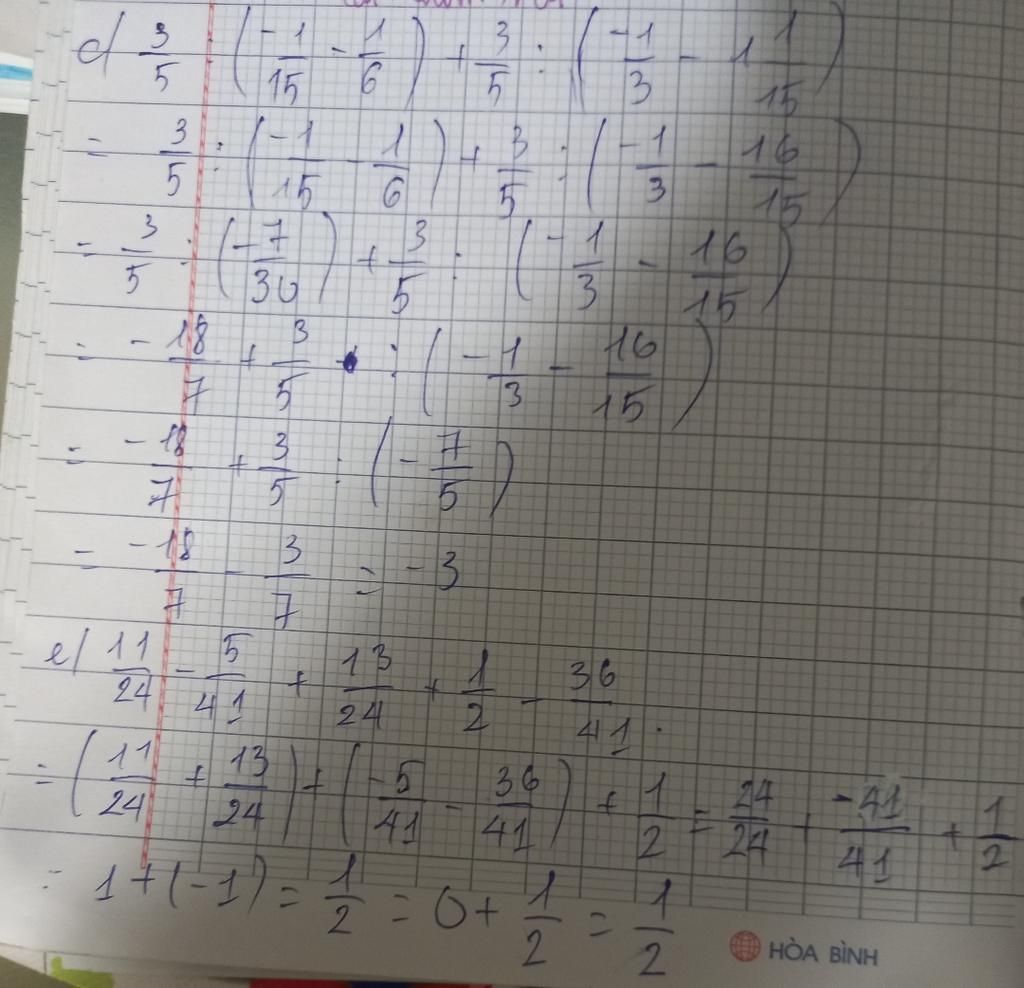 d) 3/5 : (-1/15 - 1/6) + 3/5 : (-1/3 - 1 1/15)
= 3/5 : (-1/15 - 1/6) + 3/5 : (-1/3 - 16/15)
= 3/5 : (-7/30) + 3/5 : (-1/3 - 16/15)
= -18/7 + 3/5 : (-1/3 - 16/15)
= -18/7 + 3/5 : (-7/5)
= -18/7 - 3/7 = -3
e) 11/24 - 5/41 + 13/24 + 1/2 - 36/41.
= (11/24 + 13/24) + (-5/41 - 36/41) + 1/2 = 24/24 + -41/41 + 1/2
= 1 + (-1) = 1/2 = 0 + 1/2 = 1/2
HÒA BÌNH